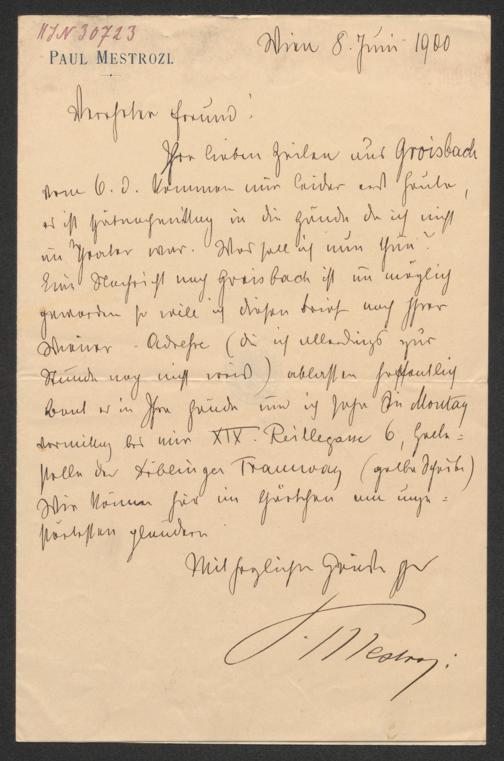 HJN 30723
PAUL MESTROZI.
Wien 8. Juni 1900
Verehrter Freund!
Ihre lieben Zeilen aus Groisbach
vom 6. d. kommen mir leider erst heute,
es ist Spätnachmittag in die Hände da ich nicht
im Theater war. Was soll ich nun thun?
Eine Nachricht nach Groisbach ist unmöglich
geworden so will ich diesen Brief nach Ihrer
Wiener-Adresse (die ich allerdings zur
Stunde noch nicht weis) ablassen hoffentlich
kommt er in Ihre Hände und ich sehe Sie Montag
vormittag bei mir XIX. Reithlegasse 6, Halte=
stelle der Döblinger Tramway (gelbe Scheibe)
Wir können hier im Gärtchen am unge=
störtesten plaudern.
Mit herzlichen Grüßen Ihr
P. Mestrozi